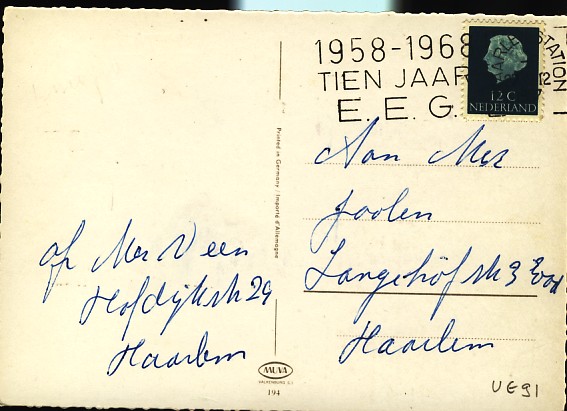 1958-1968
TIEN JAAR
E. E. G.
STATION
12 C
NEDERLAND
Printed in Germany / Importé d'Allemagne
Aan Mej
Joolen
Langehofstr 3 rood
Haarlem
af Mej Veen
Hofdijkstr 29
Haarlem
MUVA
VALKENBURG
194
UE91